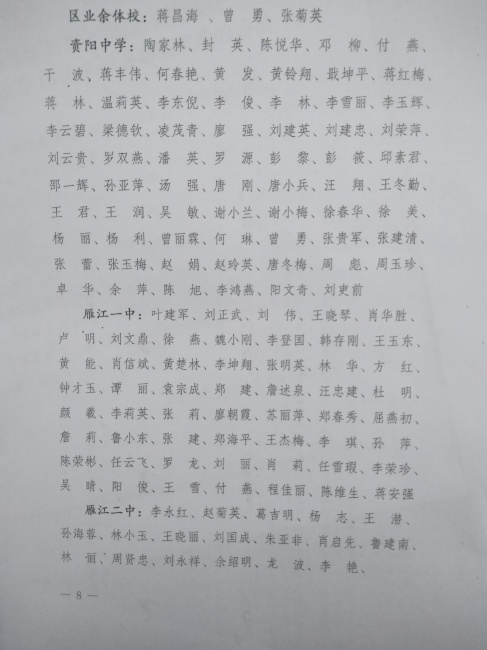 区业余体校：蒋昌海、曾　勇、张菊英
资阳中学：陶家林、封　英、陈悦华、邓　柳、付　燕、
干　波、蒋丰伟、何春艳、黄　发、黄铃翔、戢坤平、蒋红梅、
蒋　林、温莉英、李东倪、李　俊、李　林、李雪丽、李玉辉、
李云碧、梁德钦、凌茂青、廖　强、刘建英、刘建忠、刘荣萍、
刘云贵、罗双燕、潘　英、罗　源、彭　黎、彭　筱、邱素君、
邵一辉、孙亚萍、汤　强、唐　刚、唐小兵、汪　翔、王冬勤、
王　君、王　润、吴　敏、谢小兰、谢小梅、徐春华、徐　美、
杨　丽、杨　利、曾丽霖、何　琳、曾　勇、张贵军、张建清、
张　蕾、张玉梅、赵　娟、赵玲英、唐冬梅、周　彪、周玉珍、
卓　华、余　萍、陈　旭、李鸿燕、阳文奇、刘吏前
雁江一中：叶建军、刘正武、刘　伟、王晓琴、肖华胜、
卢　明、刘文鼎、徐　燕、魏小刚、李登国、韩存刚、王玉东、
黄　能、肖信斌、黄楚林、李坤翔、张明英、林　华、方　红、
钟才玉、谭　丽、袁宗成、郑　建、詹述泉、汪忠建、杜　明、
颜　羲、李莉英、张　莉、廖朝霞、苏丽萍、郑春秀、屈燕初、
詹　莉、鲁小东、张　建、郑海平、王杰梅、李　琪、孙　萍、
陈荣彬、任云飞、罗　龙、刘　丽、肖　莉、任雪瑕、李荣珍、
吴　晴、阳　俊、王　雪、付　燕、程佳丽、陈维生、蒋安强
雁江二中：李永红、赵菊英、葛吉明、杨　志、王　潜、
孙海蓉、林小玉、王晓丽、刘国成、朱亚非、肖启先、鲁建南、
林　俪、周贤忠、刘永祥、余绍明、龙　波、李　艳、
— 8 —